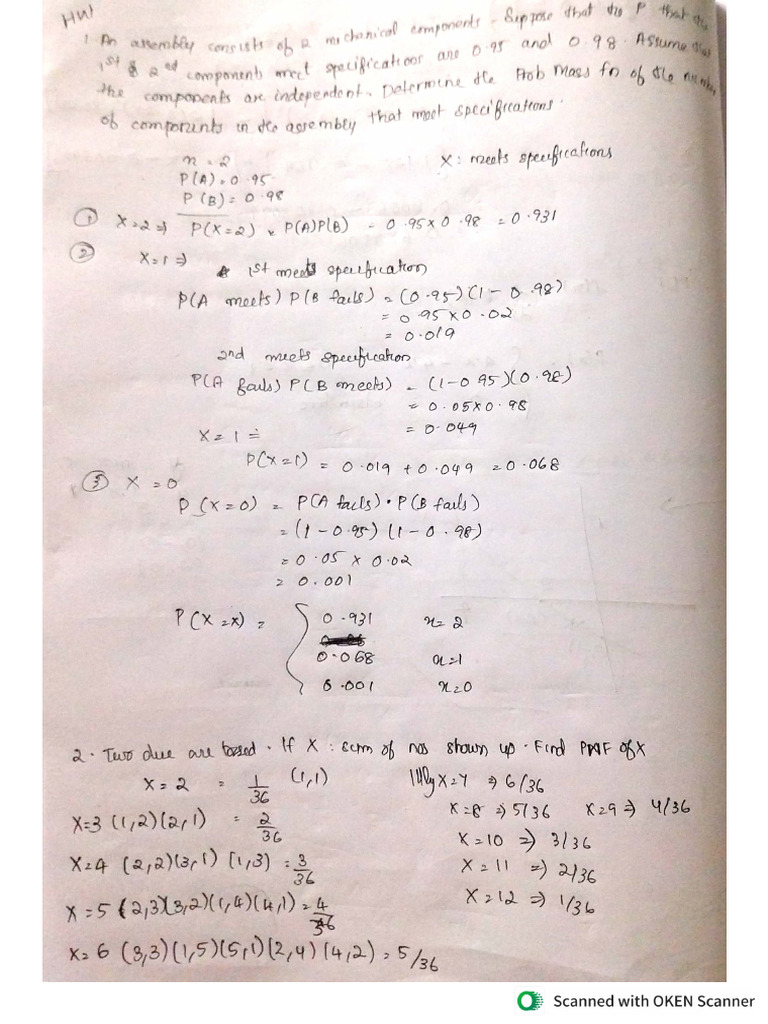 HW
1. An assembly consists of 2 mechanical components. Suppose that the P that the
1st & 2nd components meet specifications are 0.95 and 0.98. Assume that
the components are independent. Determine the Prob Mass fn of the number
of components in the assembly that meet specifications.
n = 2
X : meets specifications
P(A) = 0.95
P(B) = 0.98
① X=2 ⇒ P(X=2) = P(A)P(B) = 0.95 x 0.98 = 0.931
② X=1 ⇒
1st meets specification
P(A meets) P(B fails) = (0.95)(1 - 0.98)
= 0.95 x 0.02
= 0.019
2nd meets specification
P(A fails) P(B meets) = (1-0.95)(0.98)
= 0.05 x 0.98
= 0.049
X = 1 =
P(X=1) = 0.019 + 0.049 = 0.068
③ X = 0
P(X=0) = P(A fails) . P(B fails)
= (1 - 0.95) (1 - 0.98)
= 0.05 x 0.02
= 0.001
P(X=x) = { 0.931 x = 2
0.068 x=1
0.001 x=0
2. Two die are tossed. If X : sum of nos shown up. Find PMF of X
X = 2 = 1/36 (1,1)
X=3 (1,2)(2,1) = 2/36
X=4 (2,2)(3,1) (1,3) = 3/36
X=5 (2,3)(3,2)(1,4)(4,1) = 4/36
X=6 (3,3)(1,5)(5,1)(2,4)(4,2) = 5/36
111ly X=7 ⇒ 6/36
X=8 ⇒ 5/36 X=9 ⇒ 4/36
X=10 ⇒ 3/36
X=11 ⇒ 2/36
X=12 ⇒ 1/36
Scanned with OKEN Scanner